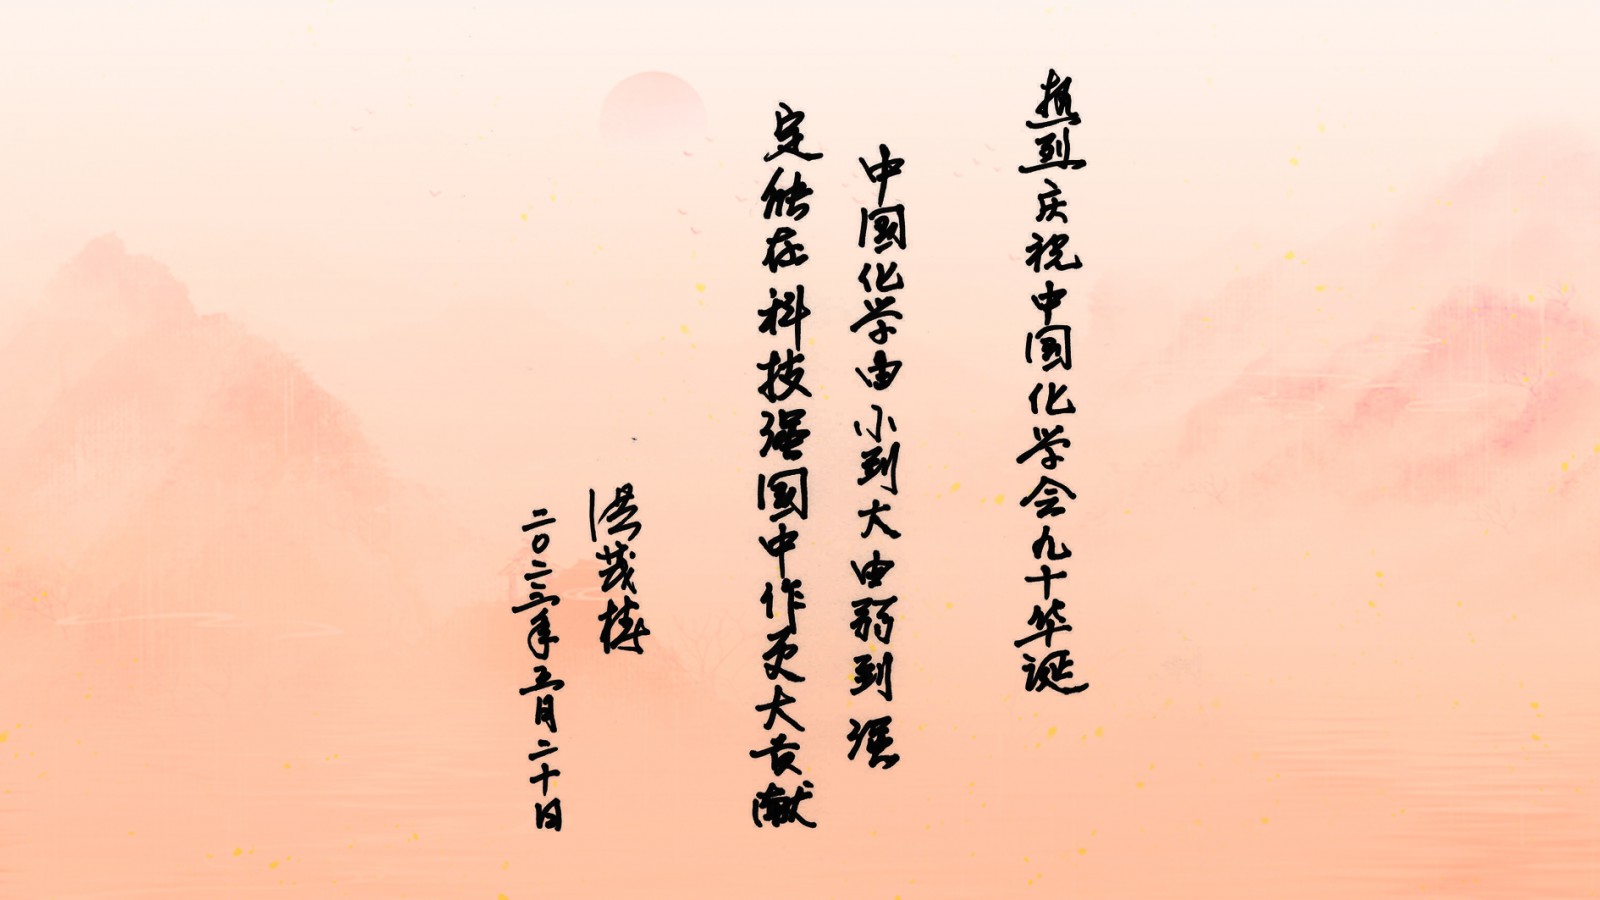 热烈庆祝中国化学会九十华诞
中国化学由小到大由弱到强
定能在科技强国中作更大贡献
洪茂椿
二〇二二年五月二十日